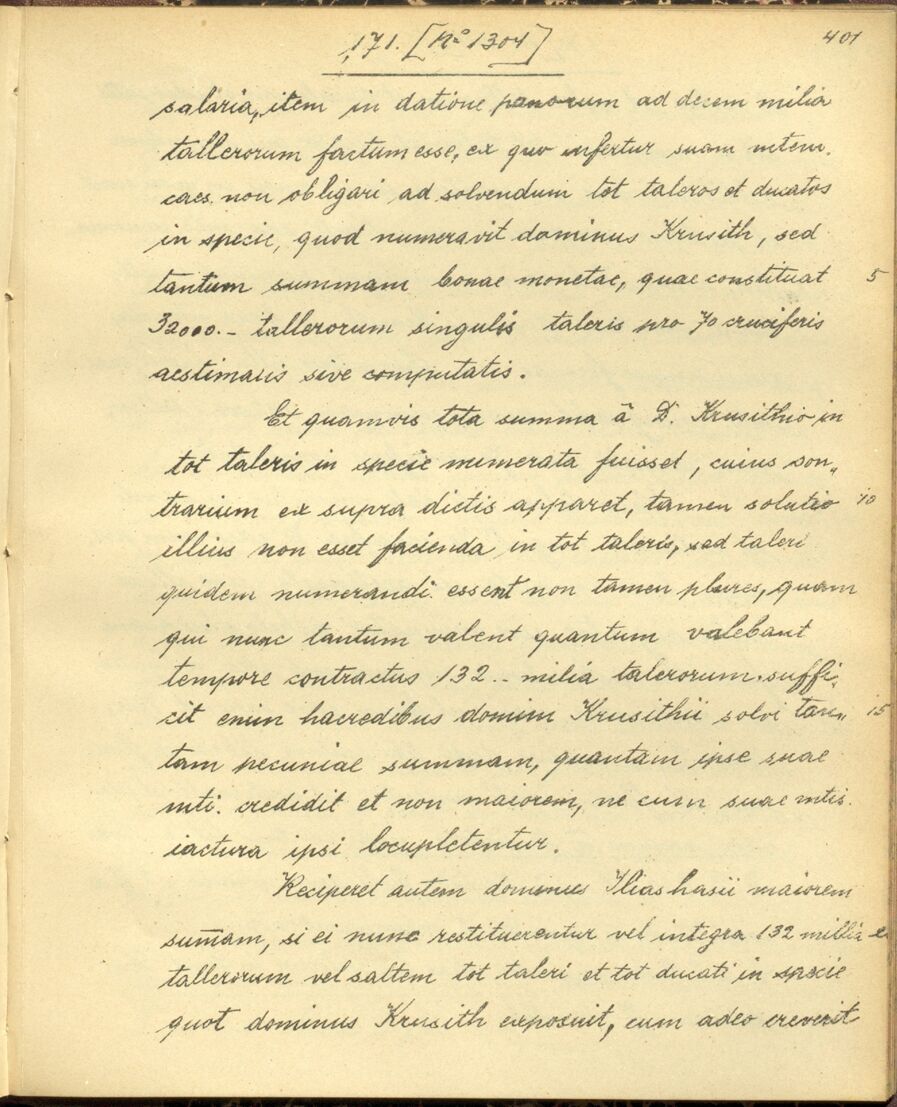 171. [No 1304]
401
salaria, item in datione panorum ad decem milia
tallerorum factum esse, ex quo infertur suam mtem.
caes. non obligari ad solvendum tot taleros et ducatos
in specie, quod numeravit dominus Krusith, sed
tantum summam bonae monetae, quae constituat 5
32000.- tallerorum singulis taleris pro 70 cruciferis
aestimatis sive computatis.
Et quamvis tota summa â D. Krusithio in
tot taleris in specie numerata fuisset, cuius con„
trarium ex supra dictis apparet, tamen solutio 10
illius non esset facienda in tot taleris, sed taleri
quidem numerandi essent non tamen plures, quam
qui nunc tantum valent quantum valebant
tempore contractus 132.. milia talerorum. suffi„
cit enim haeredibus domini Krusithii solvi tan„ 15
tam pecuniae summam, quantam ipse suae
mti. credidit et non maiorem, ne cum suae mtis.
iactura ipsi locupletentur.
Reciperet autem dominus Iliashasii maiorem
sum̄am, si ei nunc restituerentur vel integra 132 millia
tallerorum vel saltem tot taleri et tot ducati in specie
quot dominus Krusith exposuit, cum adeo creverit